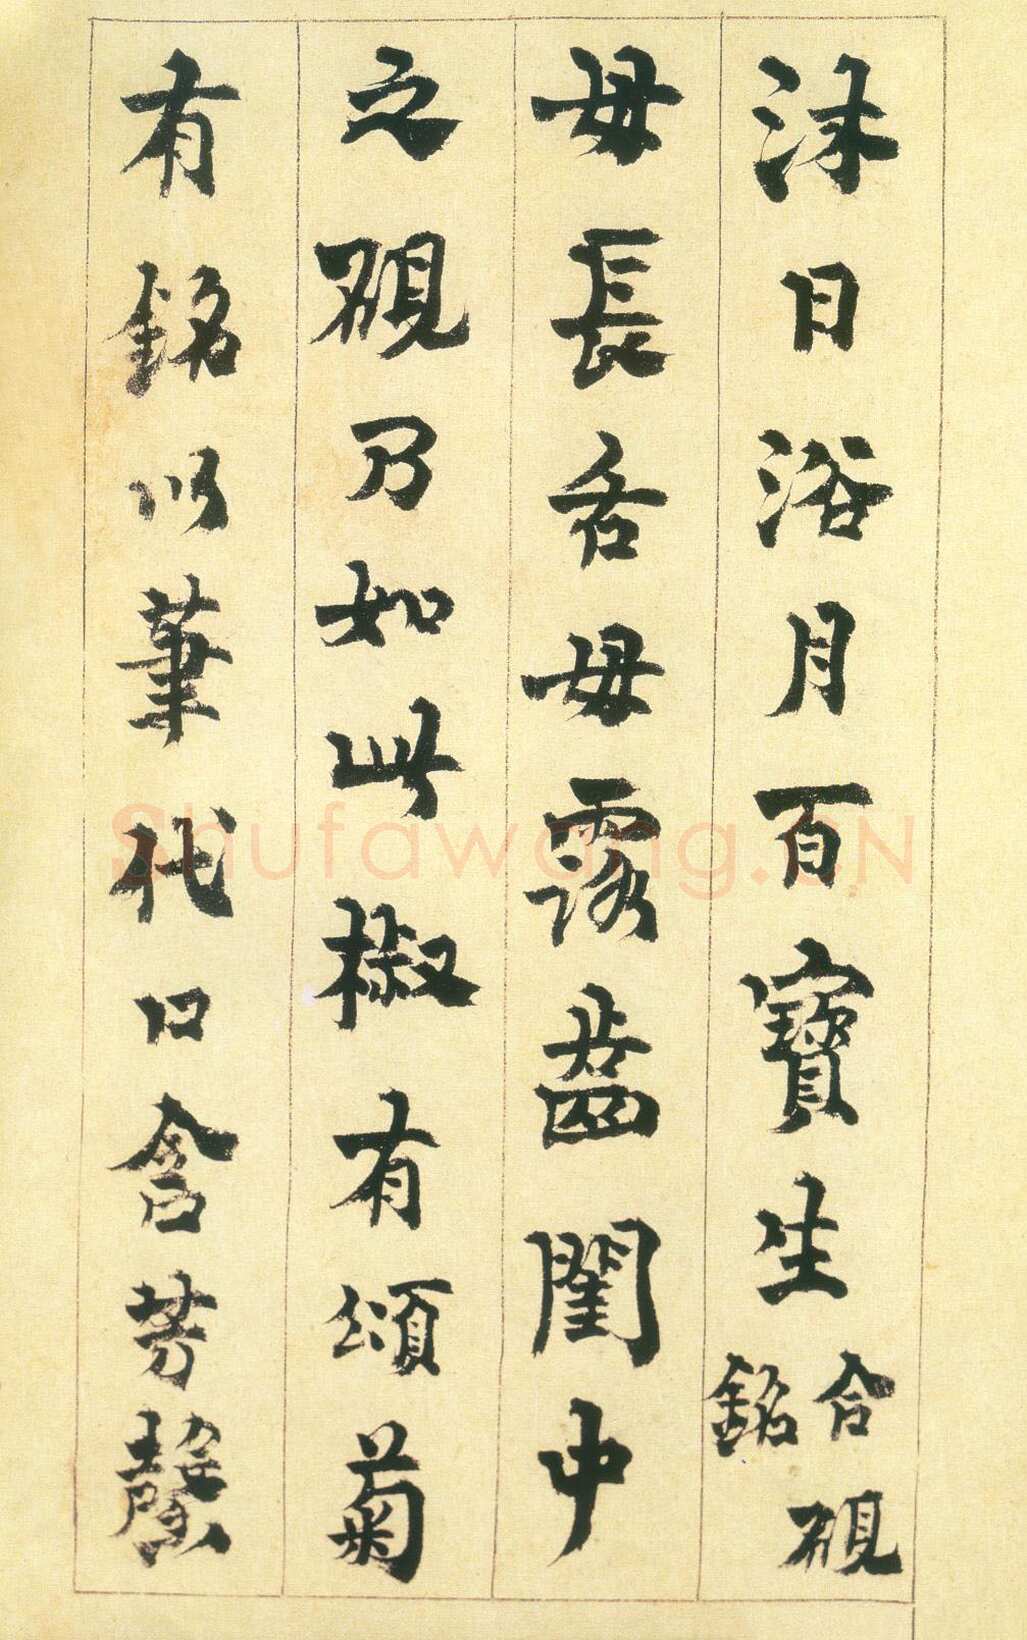 沐日浴月百寶生 合硯銘
毋長舌毋露齒閨中
之硯乃如此椒有頌菊
有銘以筆代口含芳馨
Shufawang.CN